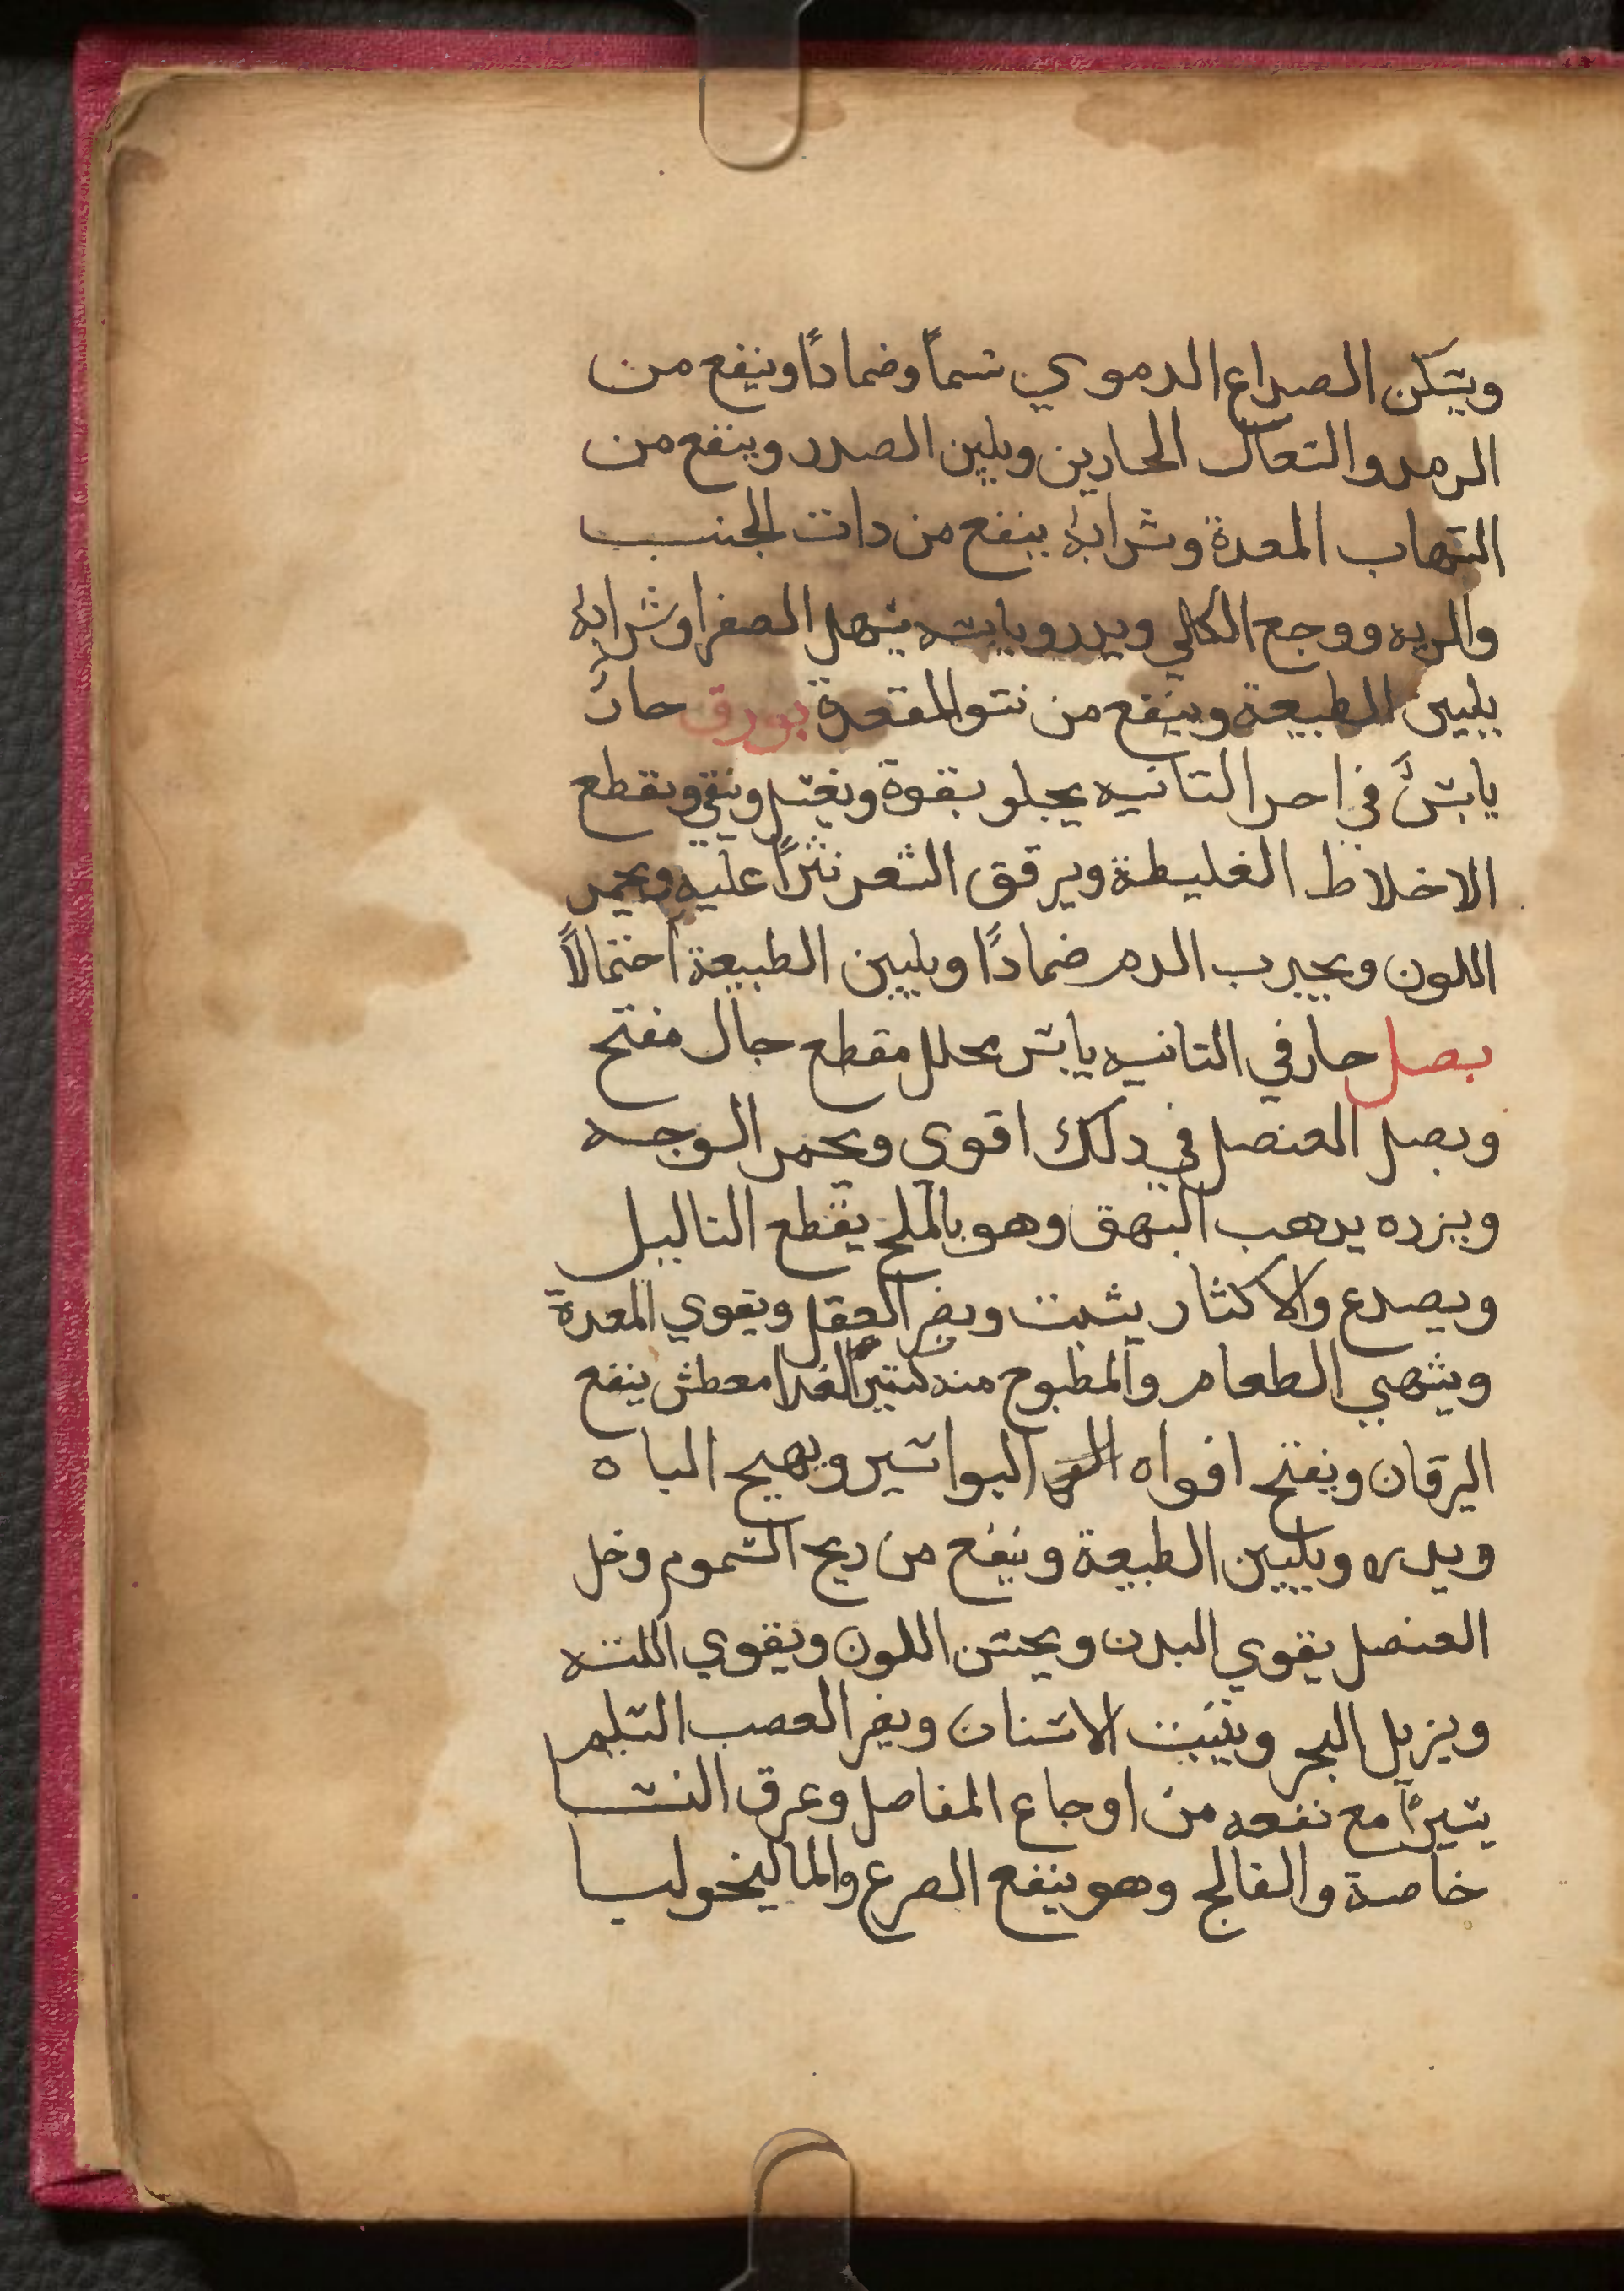 ويسكن الصداع الدموي شماً وضماداً وينفع من
الرمد والسعال الحارين ويلين الصدر وينفع من
التهاب المعدة وشرابه ينفع من دات الجنب
والريه ووجع الكلي ويدر ويابسه يسهل الصفرا وشرابه
يليين الطبيعة وينفع من نتو المقعدة بورق حارٌ
يابسٌ في اخر التانيه يجلو بقوة ويغسل وينقي ويقطع
الاخلاط الغليطة ويرقق الشعر نثراً عليه ويحمر
اللون ويجدب الدم ضماداً ويليين الطبيعة احتمالاً
بصل حار في التانيه يابس محلل مقطع جال مفتح
وبصل العنصل في دلك اقوى ويحمر الوجه
وبزره يدهب البهق وهو بالملح يقطع التاليل
ويصدع والاكثار يثبت ويضر العقل ويقوي المعدة
ويشهي الطعام والمطبوخ منه كتيرُ الغدا معطش ينفع
اليرقان ويفتح افواه البواسير ويهيج الباه
ويدر ويليين الطبيعة وينفع من ريح السموم وخل
العنصل يقوي البدن ويحسن اللون ويقوي اللته
ويزيل البخر ويثبت الاسنان ويضر العصب السليم
يسيراً مع نفعه من اوجاع المفاصل وعرق النسا
خاصة والفالج وهو ينفع الصرع والماليخوليا